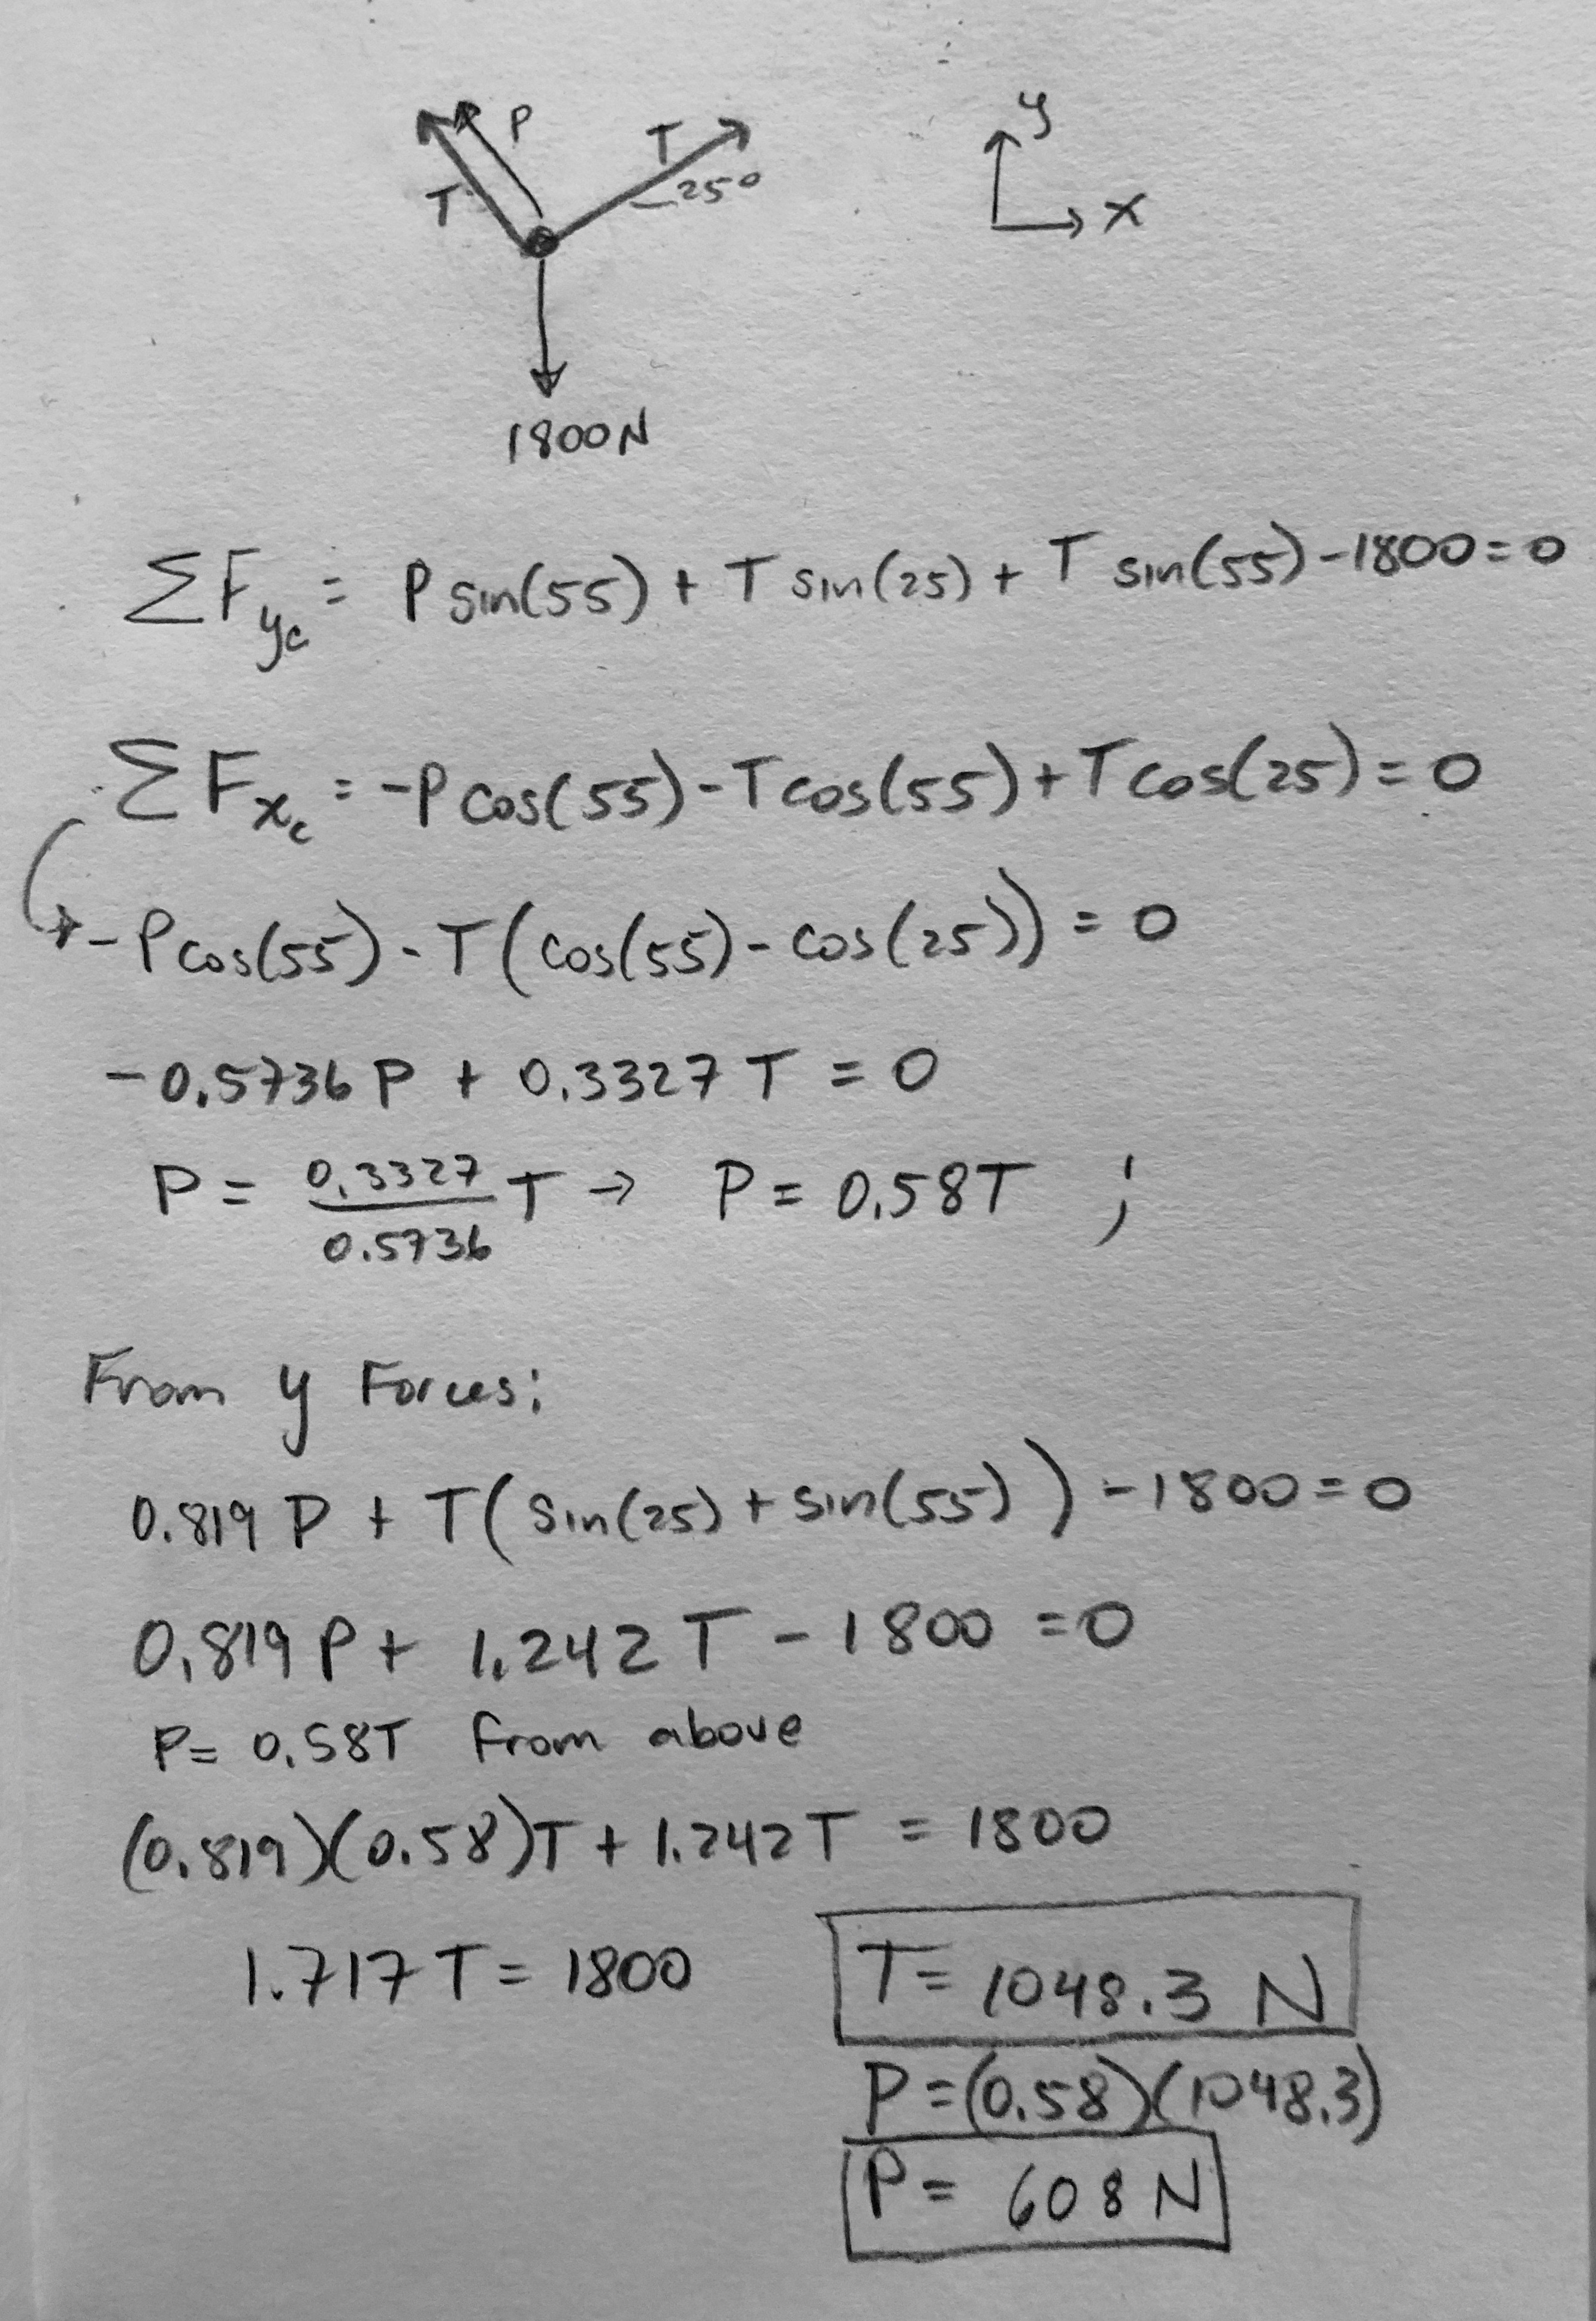 P T y
T 25° x
1800N
ΣF_yc = P sin(55) + T sin(25) + T sin(55) - 1800 = 0
ΣF_xc = -P cos(55) - T cos(55) + T cos(25) = 0
→ -P cos(55) - T(cos(55) - cos(25)) = 0
-0.5736 P + 0.3327 T = 0
P = 0.3327/0.5736 T → P = 0.58T ;
From y Forces:
0.819 P + T(sin(25) + sin(55)) - 1800 = 0
0.819 P + 1.242 T - 1800 = 0
P = 0.58T from above
(0.819)(0.58)T + 1.242T = 1800
1.717 T = 1800 T = 1048.3 N
P = (0.58)(1048.3)
P = 608 N